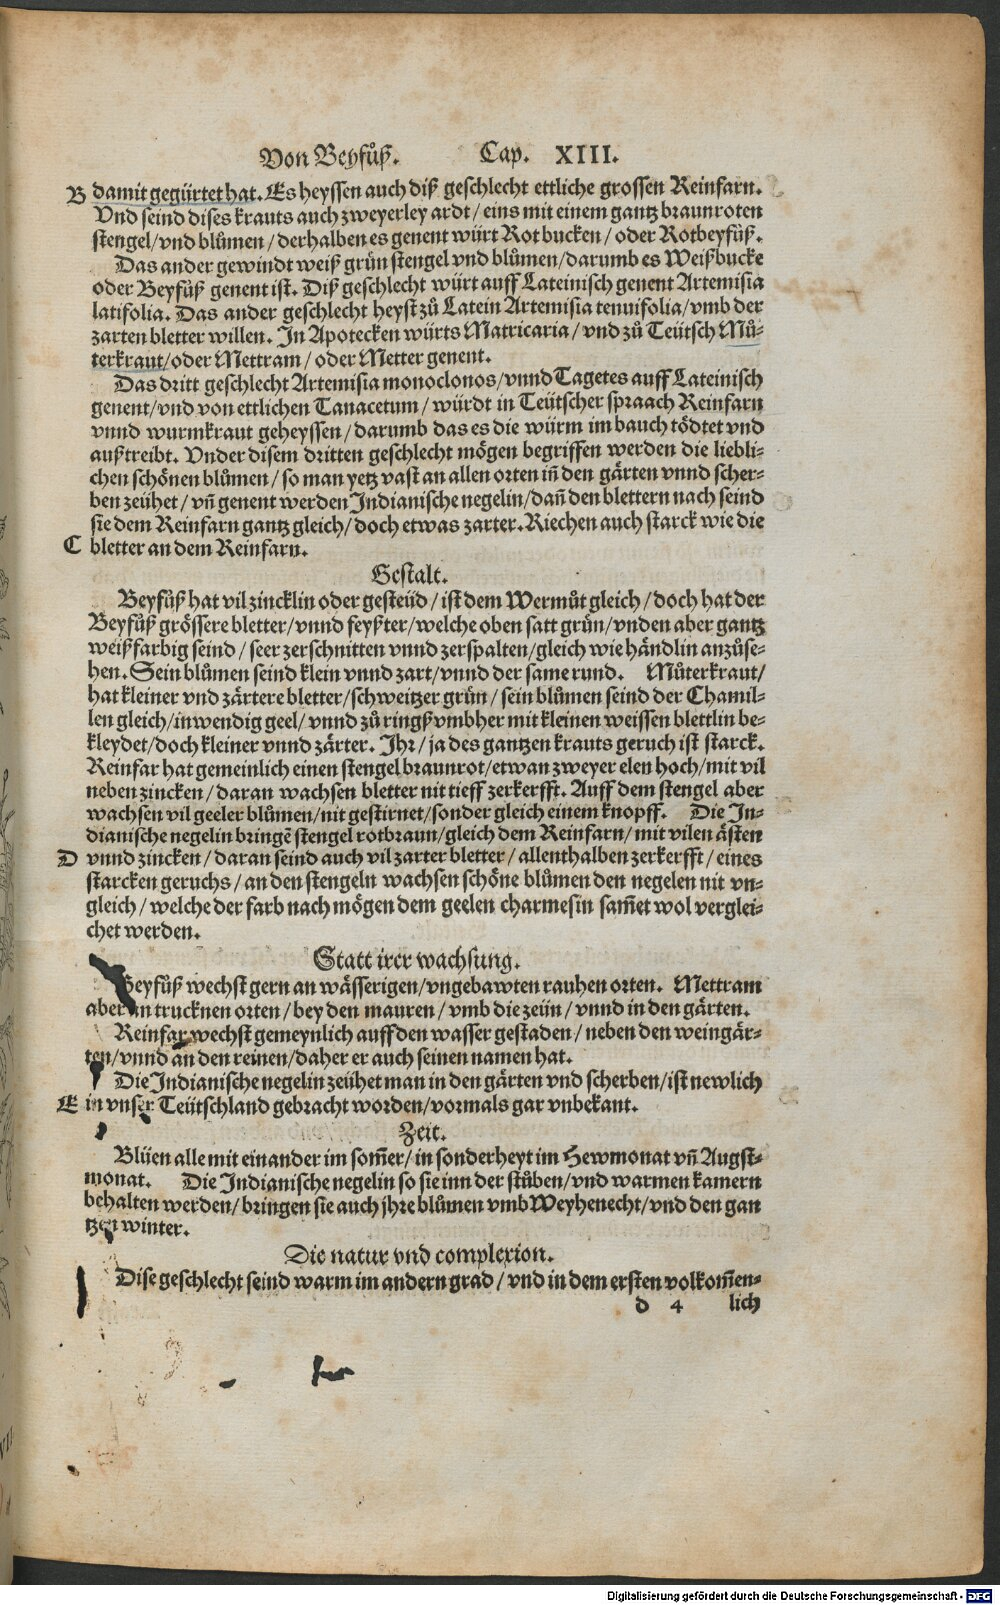 Von Beyfůß. Cap. XIII.
B damit gegürtet hat. Es heyssen auch diß geschlecht ettliche grossen Reinfarn.
Vnd seind dises krauts auch zweyerley ardt / eins mit einem gantz braunroten
stengel / vnd blůmen / derhalben es genent würt Rot bucken / oder Rotbeyfůß.
Das ander gewindt weiß grün stengel vnd blůmen / darumb es Weißbucke
oder Beyfůß genent ist. Diß geschlecht würt auff Lateinisch genent Artemisia
latifolia. Das ander geschlecht heyst zů Latein Artemisia tenuifolia / vmb der
zarten bletter willen. In Apotecken würts Matricaria / vnd zů Teütsch Mů-
terkraut / oder Mettram / oder Metter genent.
Das dritt geschlecht Artemisia monoclonos / vnnd Tagetes auff Lateinisch
genent / vnd von ettlichen Tanacetum / würdt in Teütscher spraach Reinfarn
vnnd wurmkraut geheyssen / darumb das es die würm im bauch tödtet vnd
außtreibt. Vnder disem dritten geschlecht mögen begriffen werden die liebli-
chen schönen blůmen / so man yetz vast an allen orten iñ den gärten vnnd scher-
ben zeühet / vñ genent werden Indianische negelin / dañ den blettern nach seind
sie dem Reinfarn gantz gleich / doch etwas zarter. Riechen auch starck wie die
C bletter an dem Reinfarn.
Gestalt.
Beyfůß hat vil zincklin oder gesteüd / ist dem Wermůt gleich / doch hat der
Beyfůß grössere bletter / vnnd feyßter / welche oben satt grün / vnden aber gantz
weißfarbig seind / seer zerschnitten vnnd zerspalten / gleich wie händlin anzůse-
hen. Sein blůmen seind klein vnnd zart / vnnd der same rund. Můterkraut /
hat kleiner vnd zärtere bletter / schweitzer grün / sein blůmen seind der Chamil-
len gleich / inwendig geel / vnnd zů ringß vmbher mit kleinen weissen blettlin be-
kleydet / doch kleiner vnnd zärter. Ihr / ja des gantzen krauts geruch ist starck.
Reinfar hat gemeinlich einen stengel braunrot / etwan zweyer elen hoch / mit vil
neben zincken / daran wachsen bletter nit tieff zerkerfft. Auff dem stengel aber
wachsen vil geeler blůmen / nit gestirnet / sonder gleich einem knopff. Die In-
dianische negelin bringē stengel rotbraun / gleich dem Reinfarn / mit vilen ästen
D vnnd zincken / daran seind auch vil zarter bletter / allenthalben zerkerfft / eines
starcken geruchs / an den stengeln wachsen schöne blůmen den negelen nit vn-
gleich / welche der farb nach mögen dem geelen charmesin sam̃et wol verglei-
chet werden.
Statt irer wachsung.
Beyfůß wechst gern an wässerigen / vngebawten rauhen orten. Mettram
aber an trucknen orten / bey den mauren / vmb die zeün / vnnd in den gärten.
Reinfar wechst gemeynlich auff den wasser gestaden / neben den weingär-
ten / vnnd an den reinen / daher er auch seinen namen hat.
Die Indianische negelin zeühet man in den gärten vnd scherben / ist newlich
E in vnser Teütschland gebracht worden / vormals gar vnbekant.
Zeit.
Blüen alle mit einander im som̃er / in sonderheyt im Hewmonat vñ Augst-
monat. Die Indianische negelin so sie inn der stůben / vnd warmen kamern
behalten werden / bringen sie auch jhre blůmen vmb Weyhenecht / vnd den gan
tzen winter.
Die natur vnd complexion.
Dise geschlecht seind warm im andern grad / vnd in dem ersten volkom̃en-
d 4 lich
Digitalisierung gefördert durch die Deutsche Forschungsgemeinschaft - DFG